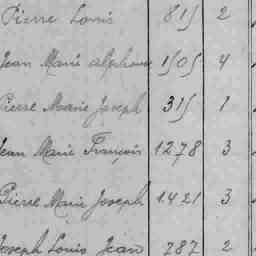 Pierre Louis 815 2
Jean Marie alphonse 1505 4
Pierre Marie Joseph 315 1
Jean Marie François 1278 3
Pierre Marie Joseph 1421 3
Joseph Louis Jean 787 2